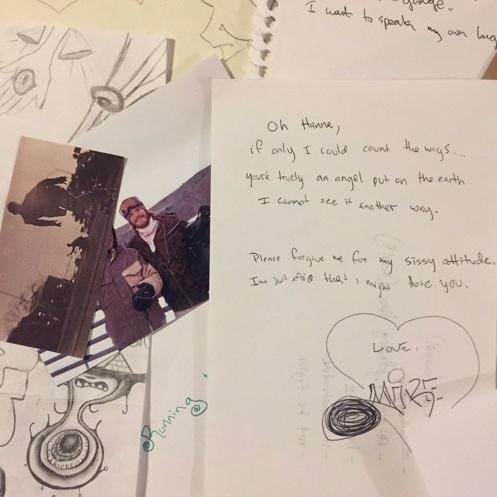 guage.
I want to speak my own lang
Oh Hanna,
if only I could count the ways...
you're truely an angel put on the earth
I cannot see it another way.
Please forgive me for my sissy attitude.
Im just afraid that I might lose you.
Love,
MIKE
Running